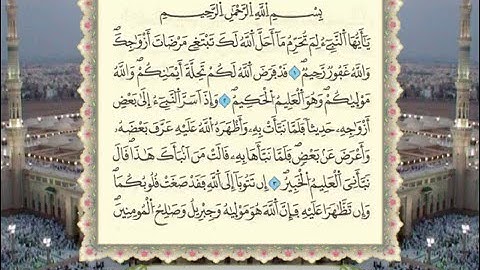 بِسْمِ ٱللَّهِ ٱلرَّحْمَٰنِ ٱلرَّحِيمِ
يَٰٓأَيُّهَا ٱلنَّبِىُّ لِمَ تُحَرِّمُ مَآ أَحَلَّ ٱللَّهُ لَكَ تَبْتَغِى مَرْضَاتَ أَزْوَٰجِكَ
وَٱللَّهُ غَفُورٌ رَّحِيمٌ ۝١ قَدْ فَرَضَ ٱللَّهُ لَكُمْ تَحِلَّةَ أَيْمَٰنِكُمْ وَٱللَّهُ
مَوْلَىٰكُمْ وَهُوَ ٱلْعَلِيمُ ٱلْحَكِيمُ ۝٢ وَإِذْ أَسَرَّ ٱلنَّبِىُّ إِلَىٰ بَعْضِ
أَزْوَٰجِهِۦ حَدِيثًا فَلَمَّا نَبَّأَتْ بِهِۦ وَأَظْهَرَهُ ٱللَّهُ عَلَيْهِ عَرَّفَ بَعْضَهُۥ
وَأَعْرَضَ عَنۢ بَعْضٍ فَلَمَّا نَبَّأَهَا بِهِۦ قَالَتْ مَنْ أَنۢبَأَكَ هَٰذَا قَالَ
نَبَّأَنِىَ ٱلْعَلِيمُ ٱلْخَبِيرُ ۝٣ إِن تَتُوبَآ إِلَى ٱللَّهِ فَقَدْ صَغَتْ قُلُوبُكُمَا
وَإِن تَظَٰهَرَا عَلَيْهِ فَإِنَّ ٱللَّهَ هُوَ مَوْلَىٰهُ وَجِبْرِيلُ وَصَٰلِحُ ٱلْمُؤْمِنِينَ